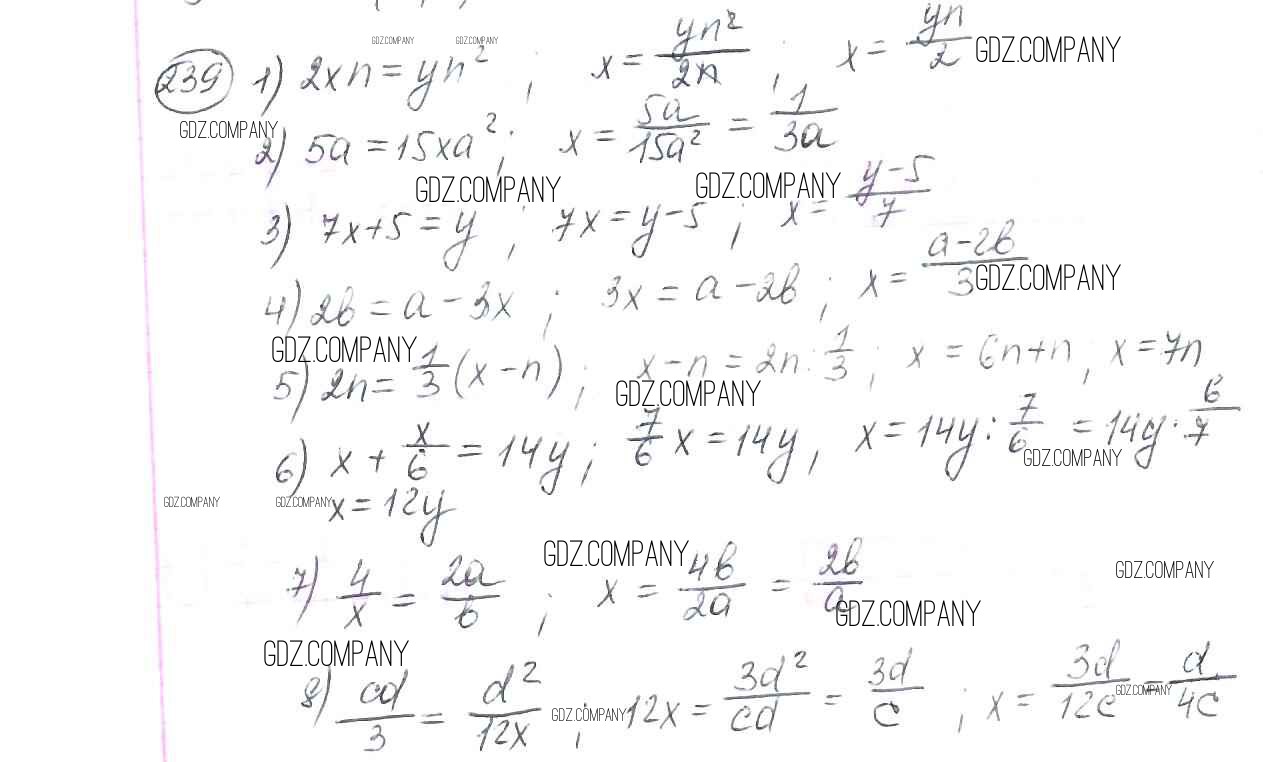 GDZ.COMPANY GDZ.COMPANY
239 1) 2xn = yn² ; x = yn²/2n ; x = yn/2 GDZ.COMPANY
GDZ.COMPANY
2) 5a = 15xa² ; x = 5a/15a² = 1/3a
GDZ.COMPANY GDZ.COMPANY
3) 7x+5 = y ; 7x = y-5 ; x = y-5/7
4) 2b = a - 3x ; 3x = a - 2b ; x = a-2b/3 GDZ.COMPANY
GDZ.COMPANY
5) 2n = 1/3 (x-n) ; x-n = 2n : 1/3 ; x = 6n+n , x = 7n
GDZ.COMPANY
6) x + x/6 = 14y ; 7/6 x = 14y , x = 14y : 7/6 = 14y · 6/7
GDZ.COMPANY
GDZ.COMPANY GDZ.COMPANY x = 12y
GDZ.COMPANY GDZ.COMPANY
7) 4/x = 2a/b ; x = 4b/2a = 2b/a
GDZ.COMPANY
GDZ.COMPANY
8) cd/3 = d²/12x ; GDZ.COMPANY 12x = 3d²/cd = 3d/c ; x = 3d/12c = d/4c
GDZ.COMPANY